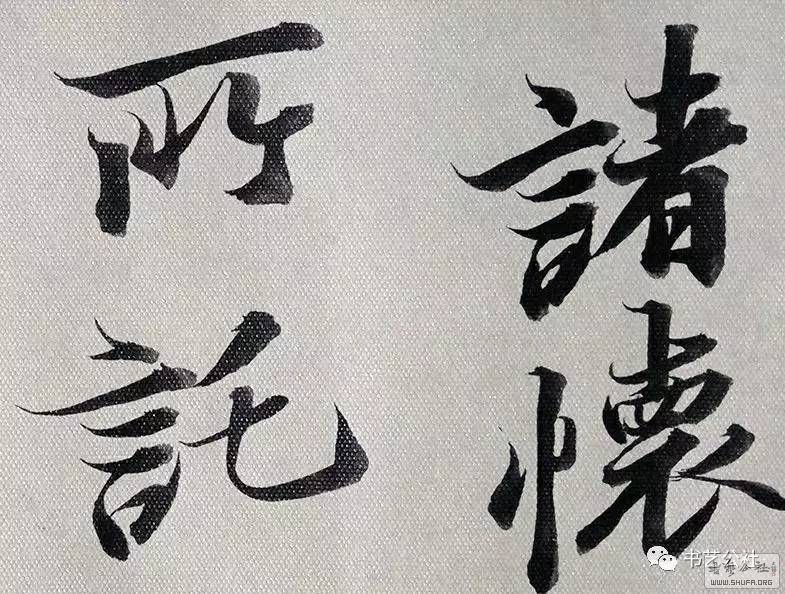 諸懷
所託
书艺公社
书艺公社
WWW.SHUFA.ORG